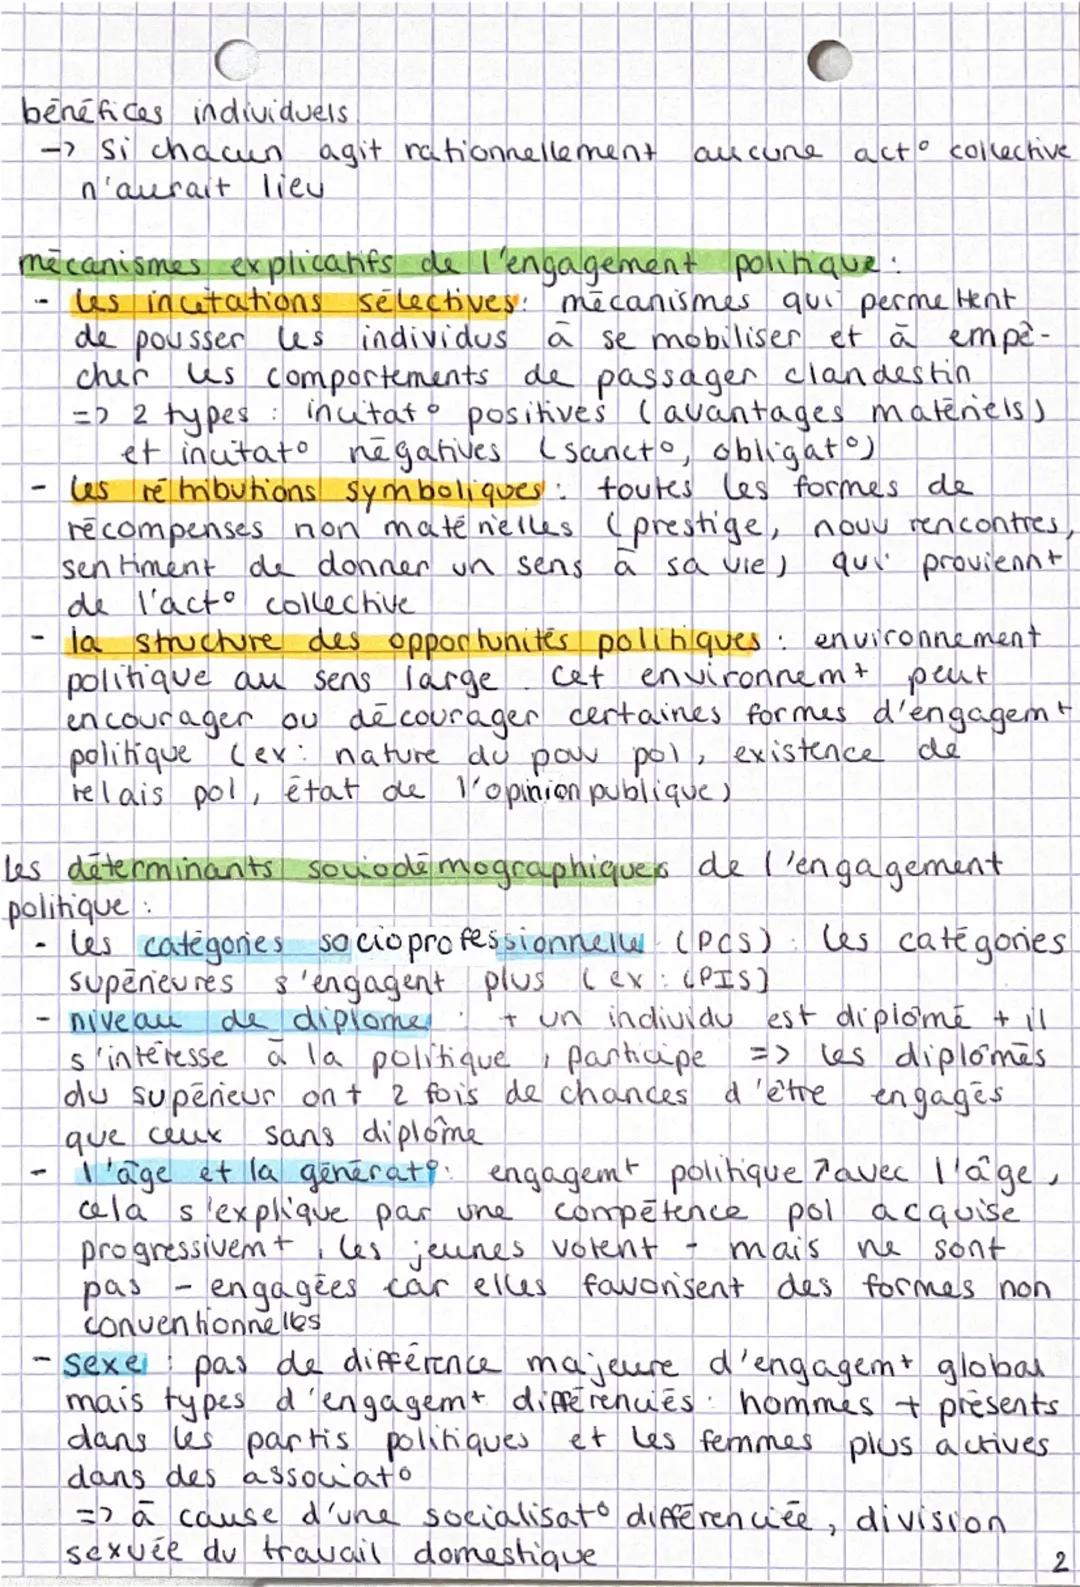 bénéfices individuels
-> Si chacun agit rationnellement aucune act° collective
n'aurait lieu
mécanismes explicatifs de l'engagement politique :
- les incitations sélectives : mécanismes qui permettent
de pousser les individus à se mobiliser et à empê-
cher les comportements de passager clandestin
=> 2 types : incitat° positives (avantages matériels)
et incitat° négatives (sanct°, obligat°)
- les rétributions symboliques : toutes les formes de
récompenses non matérielles (prestige, nouv rencontres,
sentiment de donner un sens à sa vie) qui proviennt
de l'act° collective
- la structure des opportunités politiques : environnement
politique au sens large. Cet environnemt peut
encourager ou décourager certaines formes d'engagemt
politique (ex : nature du pouv pol, existence de
relais pol, état de l'opinion publique)
les déterminants sociodémographiques de l'engagement
politique :
- les catégories socioprofessionnelle (PCS) : les catégories
supérieures s'engagent plus (ex : CPIS)
- niveau de diplome : + un individu est diplômé + il
s'intéresse à la politique, participe => les diplômés
du supérieur ont 2 fois de chances d'être engagés
que ceux sans diplôme
- l'âge et la générat° : engagemt politique ↗ avec l'âge,
cela s'explique par une compétence pol acquise
progressivemt, les jeunes votent - mais ne sont
pas - engagées car elles favorisent des formes non
conventionnelles
- sexe : pas de différence majeure d'engagemt global
mais types d'engagemt différenciés : hommes + présents
dans les partis politiques et les femmes plus actives
dans des associat°
=> à cause d'une socialisat° différenciée, division
sexuée du travail domestique
2